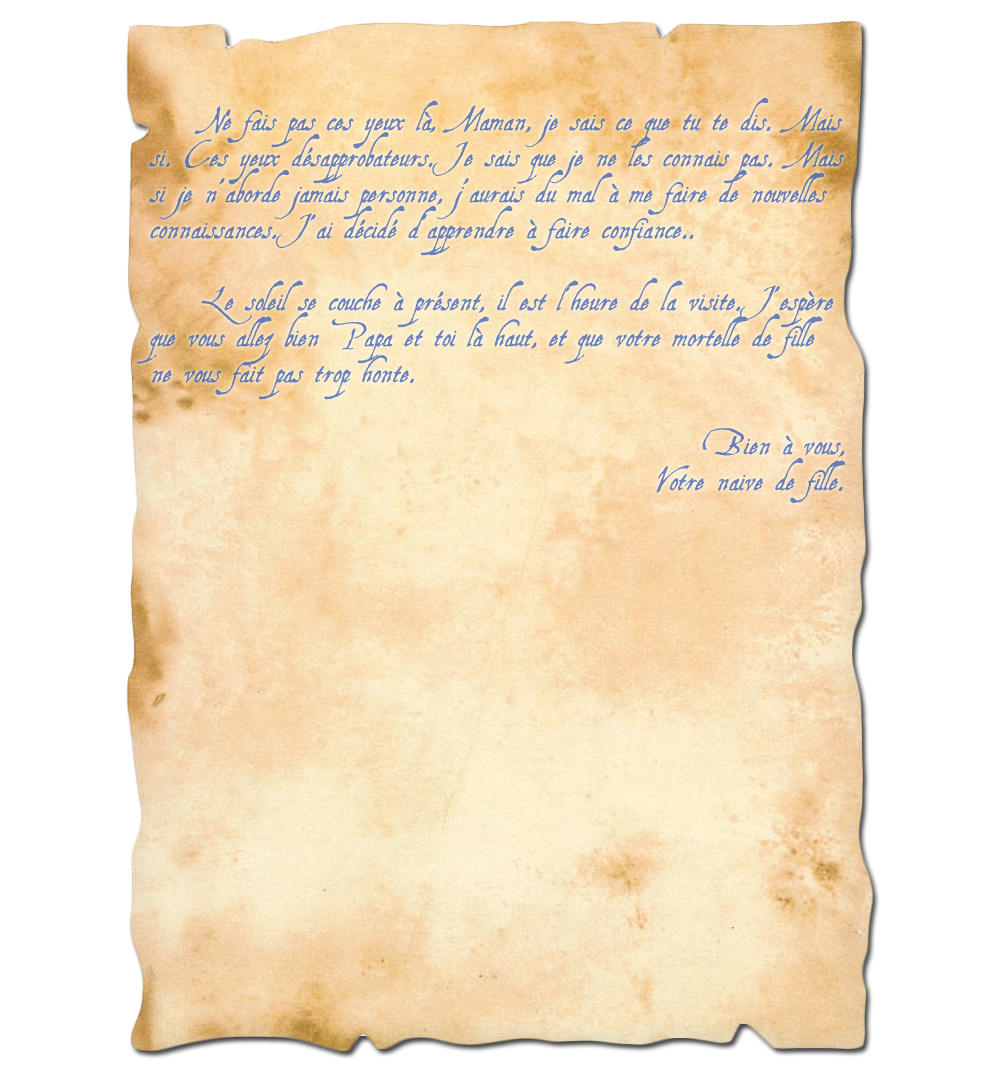 Ne fais pas ces yeux là, Maman, je sais ce que tu te dis. Mais
si. Ces yeux désapprobateurs. Je sais que je ne les connais pas. Mais
si je n'aborde jamais personne, j'aurais du mal à me faire de nouvelles
connaissances. J'ai décidé d'apprendre à faire confiance..
Le soleil se couche à présent, il est l'heure de la visite. J'espère
que vous allez bien Papa et toi là haut, et que votre mortelle de fille
ne vous fait pas trop honte.
Bien à vous,
Votre naive de fille.